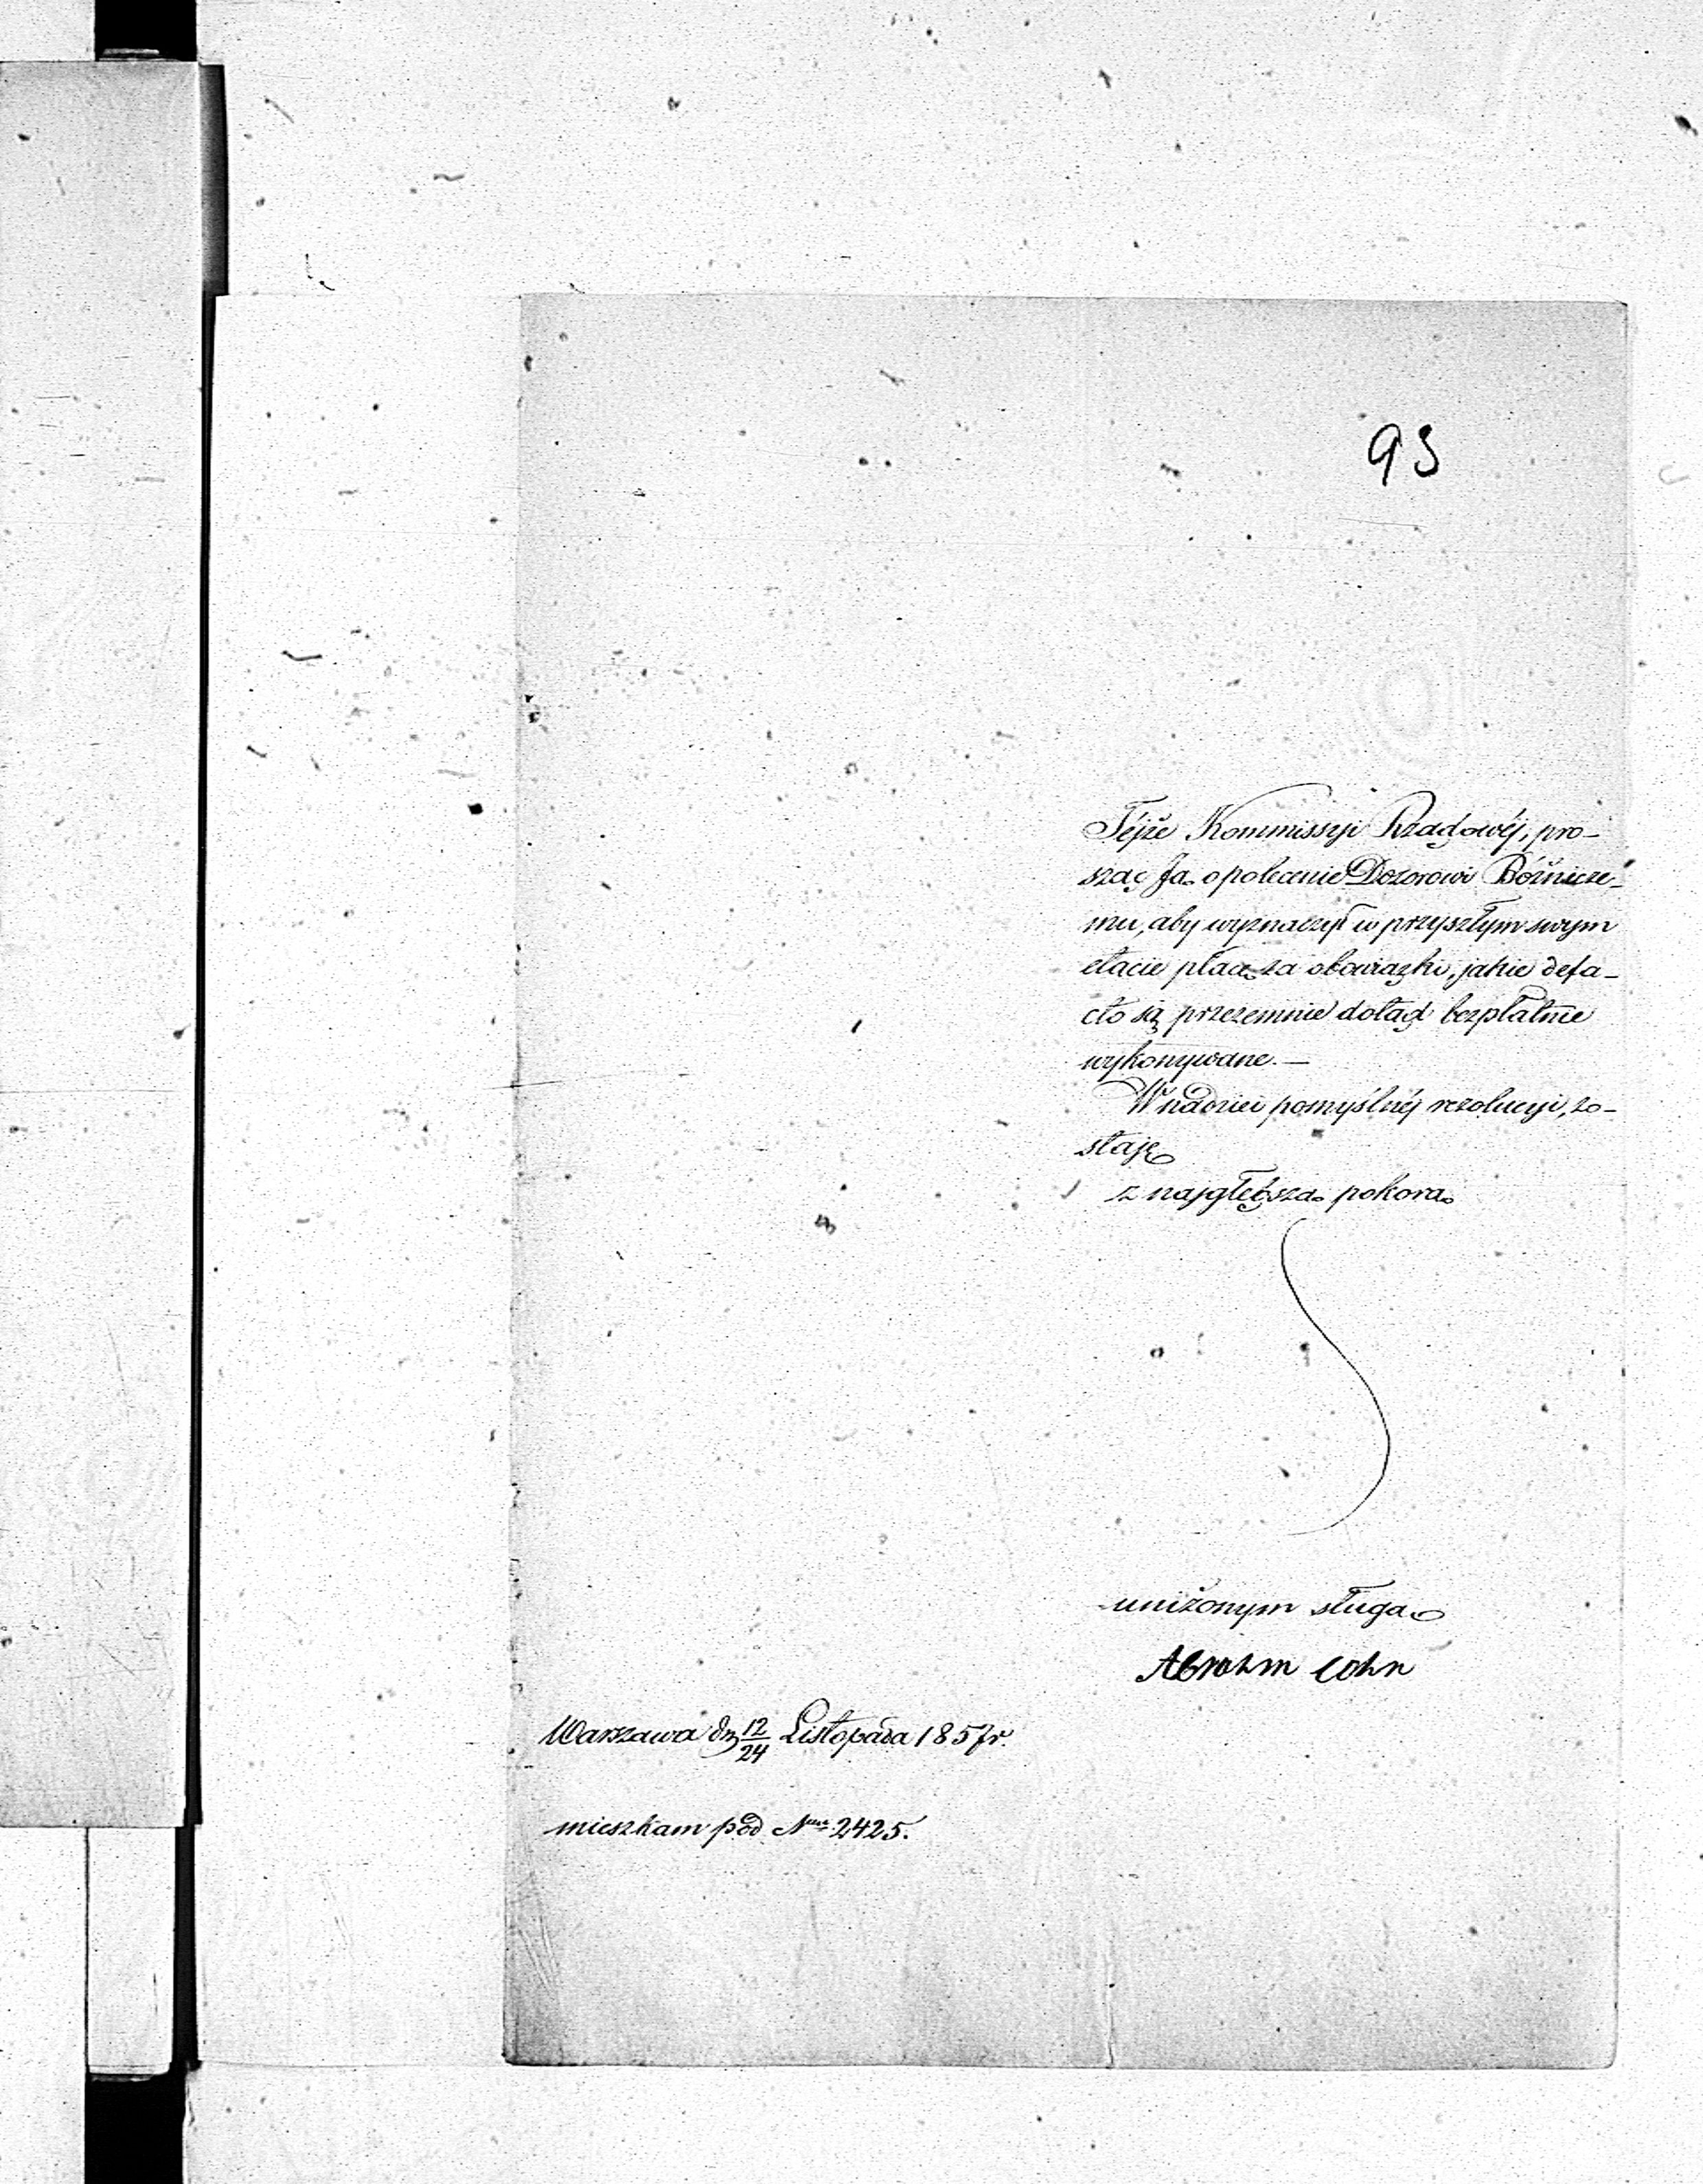 93
Téjże Kommissyi Rządowéj, pro-
sząc Ją o polecenie Dozorowi Bóżnicze-
mu, aby wyznaczył w przyszłym swym
etacie płacę za obowiązki, jakie defa-
cto są przezemnie dotąd bezpłatnie
wykonywane. —
W nadziei pomyślnéj rezolucyi, zo-
staję
z najgłębszą pokorą
uniżonym sługą
Abrahm Cohn
Warszawa dn 12/24 Listopada 1857 r.
mieszkam pod Nrem 2425.